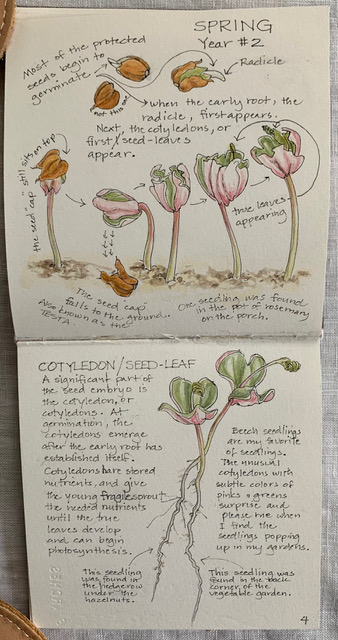 SPRING
Year #2
Most of the protected
seeds begin to
germinate
Radicle
not this one
when the early root, the
radicle, first appears.
Next, the cotyledons, or
first/seed-leaves
appear.
the "seed cap" still sits on top
true leaves
appearing
The seed cap
falls to the ground.
Also known as the
TESTA
One seedling was found
in the pot of rosemary
on the porch.
COTYLEDON/SEED-LEAF
A significant part of
the seed embryo is
the cotyledon, or
cotyledons. At
germination, the
cotyledons emerge
after the early root has
established itself.
Cotyledons have stored
nutrients, and give
the young fragile sprout
the needed nutrients
until the true
leaves develop
and can begin
photosynthesis.
Beech seedlings
are my favorite
of seedlings.
The unusual
cotyledons with
subtle colors of
pinks + greens
surprise and
please me when
I find the
seedlings popping
up in my gardens.
This seedling
was found in the
hedgerow
under the
hazelnuts.
This seedling was
found in the back
corner of the
vegetable garden.
4